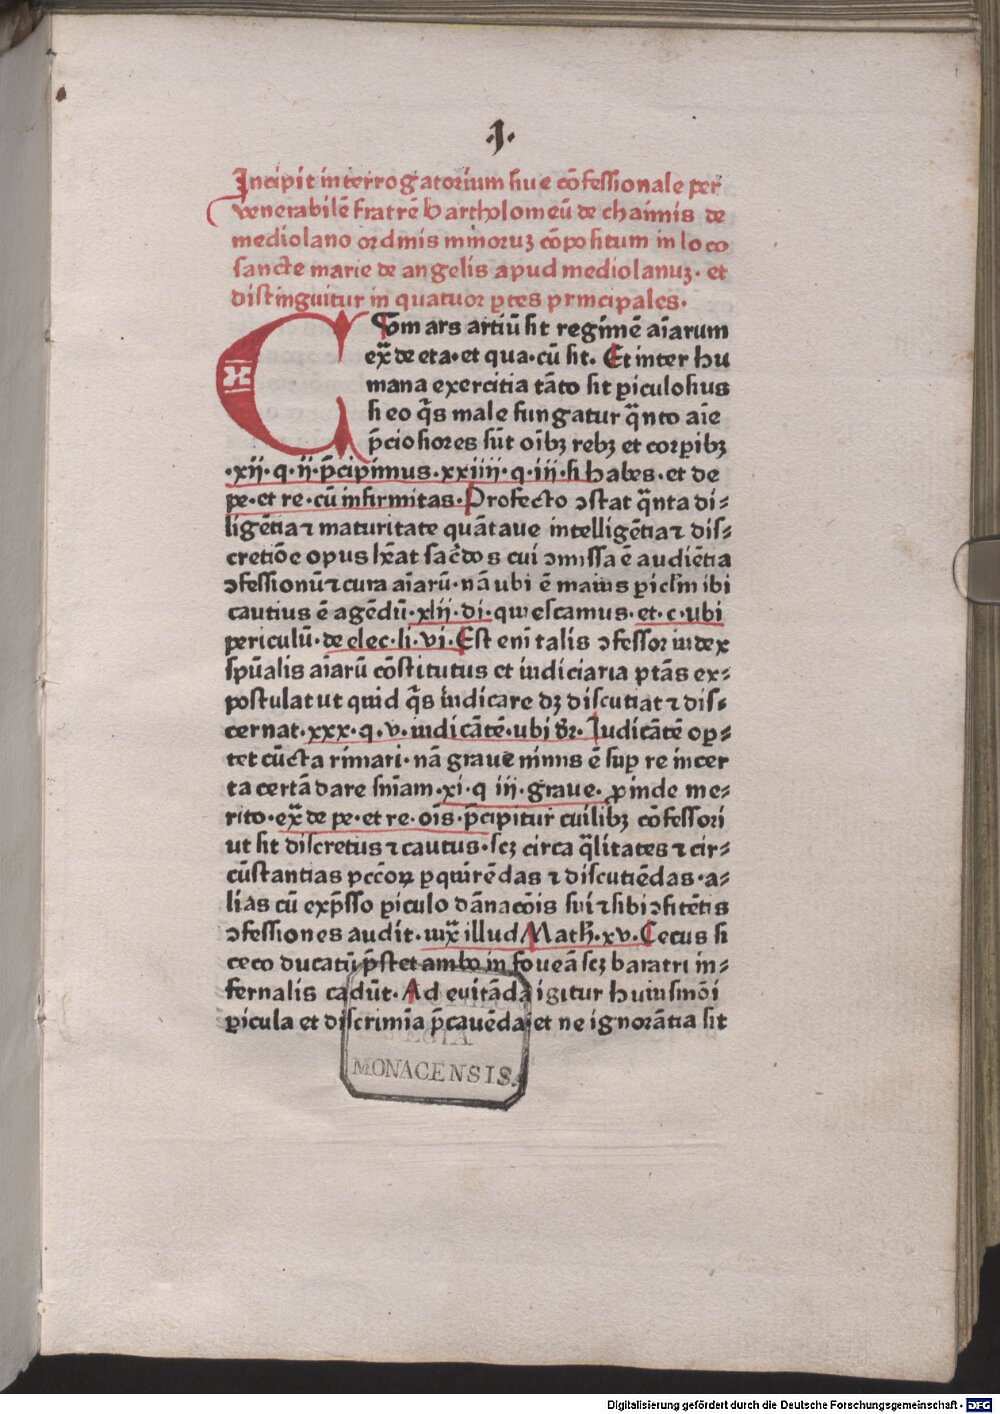 .I.
Incipit interrogatorium siue cōfessionale per
venerabilē fratrē Bartholomeū de chaimis de
mediolano ordinis minoruꝫ cōpositum in loco
sancte marie de angelis apud mediolanuꝫ. et
distinguitur in quatuor ꝑtes principales.
Com ars artiū sit regimē aīarum
ex̄ de eta. et qua. cū sit. Et inter hu
mana exercitia tāto sit ꝑiculosius
si eo q̄s male fungatur q̄nto aīe
p̄ciosiores sūt oībꝫ rebꝫ et corꝑibꝫ
.xij. q. ij. p̄cipimus. xxiiii. q. iij. si habes. et de
pe. et re. cū infirmitas. Profecto ↄstat q̄nta di⸗
ligētia ⁊ maturitate quātaue intelligētia ⁊ dis⸗
cretiōe opus hēat sac̄dos cui ↄmissa ē audiētia
ↄfessionū ⁊ cura aīarū. nā ubi ē maius ꝑicl̄m ibi
cautius ē agēdū. xlij. di. quiescamus. et. c. ubi
periculū. de elec. li. vi. Est enī talis ↄfessor iudex
spūalis aīarū cōstitutus et iudiciaria ptās ex⸗
postulat ut quid q̄s iudicare dꝫ discutiat ⁊ dis⸗
cernat. xxx. q. v. iudicātē. ubi dr̄. Iudicātē oꝑ⸗
tet cūcta rimari. nā graue nimis ē suꝑ re incer
ta certā dare sniam. xi. q iij. graue. ꝓinde me⸗
rito. ex̄ de pe. et re. oīs. p̄cipitur cuilibꝫ cōfessori
ut sit discretus ⁊ cautus. scꝫ circa q̄litates ⁊ cir⸗
cūstantias pccōꝝ ꝑquirēdas ⁊ discutiēdas. a⸗
lias cū exp̄sso ꝑiculo dānacōis sui ⁊ sibi ↄfitētis
ↄfessiones audit. iux̄ illud Math̄. xv. Cecus si
ceco ducatū p̄stet ambo in foueā scꝫ baratri in⸗
fernalis cadūt. Ad euitāda igitur huiusmōi
ꝑicula et discrimīa p̄cauēda et ne ignorātia sit
REGIA
MONACENSIS.
Digitalisierung gefördert durch die Deutsche Forschungsgemeinschaft - DFG